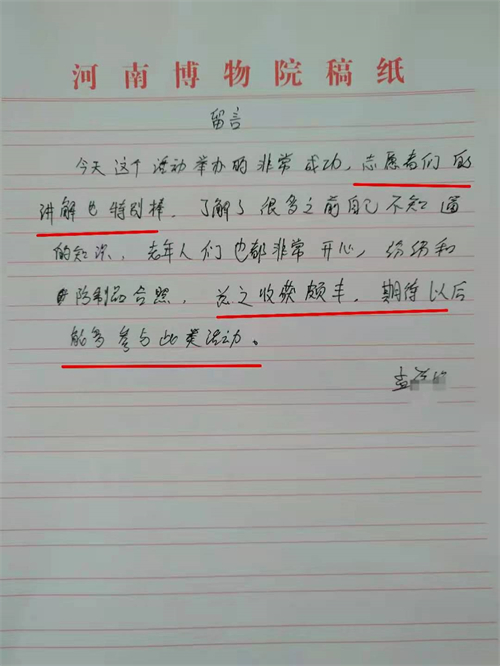 河南博物院稿纸
留言
今天这个活动举办的非常成功,志愿者们的
讲解也特别棒,了解了很多之前自己不知道
的知识,老年人们也都非常开心,纷纷和
陈列品合照,总之收获颇丰,期待以后
能多参与此类活动。
孟